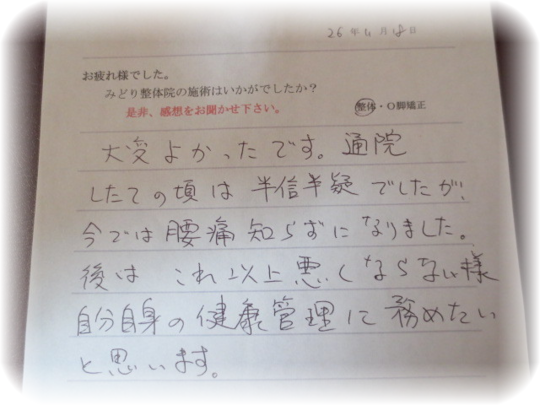 26年4月18日
お疲れ様でした。
みどり整体院の施術はいかがでしたか？
是非、感想をお聞かせ下さい。
整体・O脚矯正
大変よかったです。通院
したての頃は半信半疑でしたが、
今では腰痛知らずになりました。
後はこれ以上悪くならない様
自分自身の健康管理に務めたい
と思います。